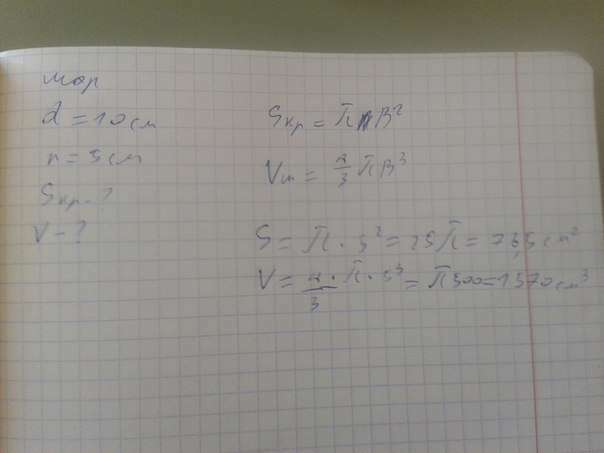 шар
d = 10 см
r = 5 см
Sкр - ?
V - ?
Sкр = π R²
Vш = 4/3 π R³
S = π · 5² = 25π = 78,5 см²
V = 4/3 · π · 5³ = π500 = 1570 см³